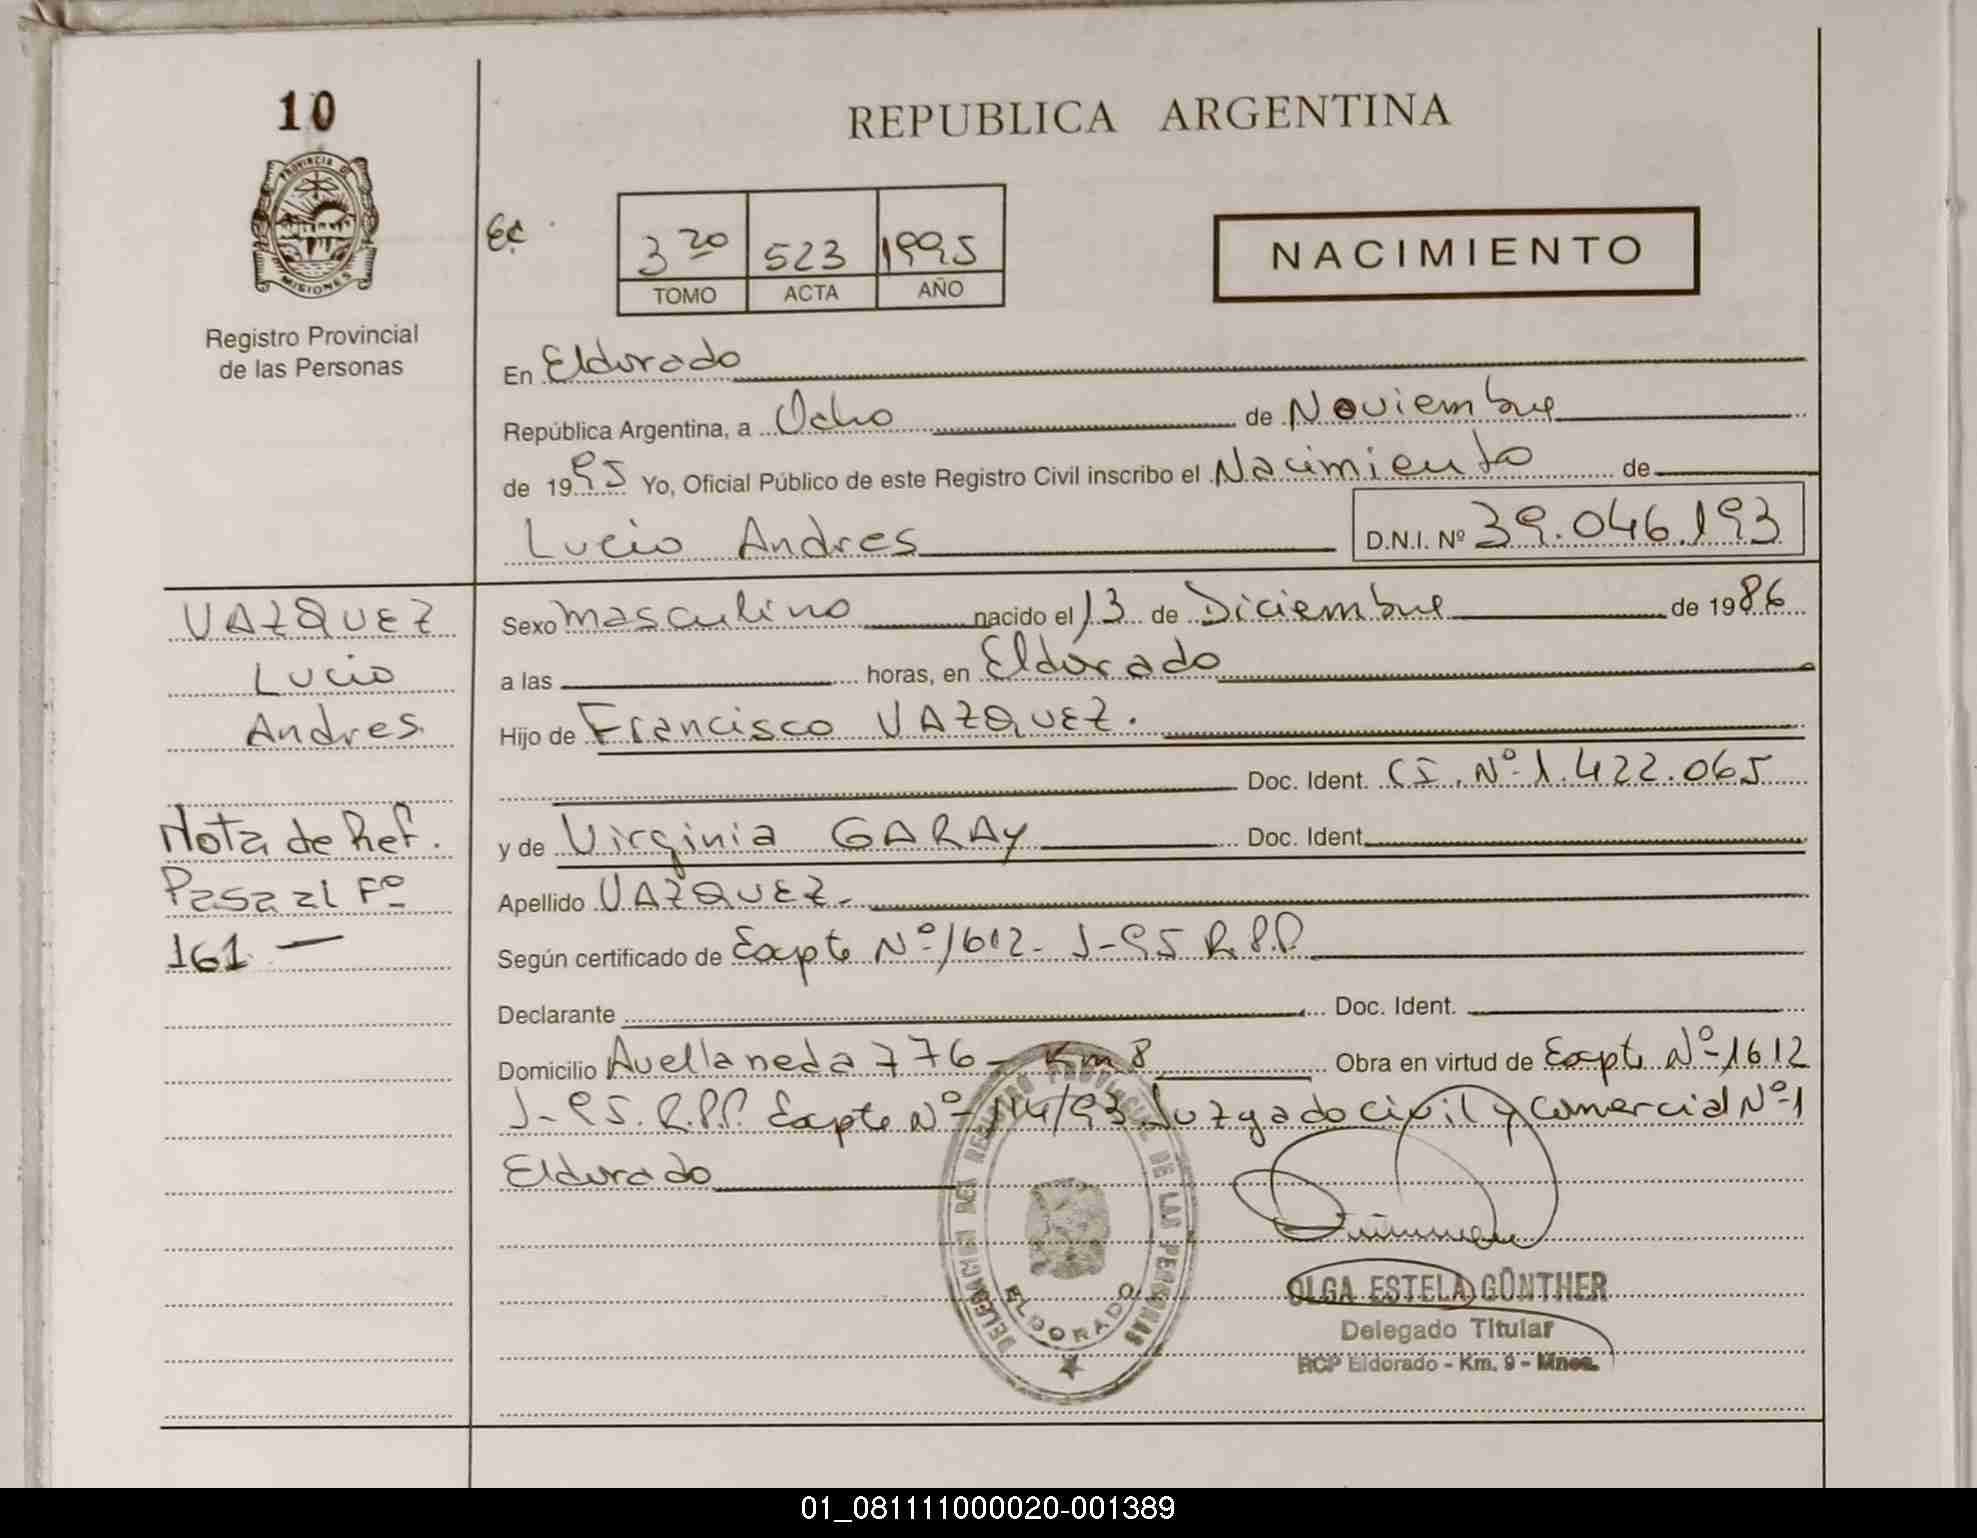 10
REPUBLICA ARGENTINA
PROVINCIA D
MISIONES
3 20 523 1995
TOMO ACTA AÑO
NACIMIENTO
Registro Provincial
de las Personas
En Eldorado
República Argentina, a Ocho de Noviembre
de 1995 Yo, Oficial Público de este Registro Civil inscribo el Nacimiento de
Lucio Andres D.N.I. Nº 39.046.193
VAZQUEZ
Lucio
Andres
Nota de Ref.
Pasa al Fº
161
Sexo masculino nacido el 13 de Diciembre de 1986
a las horas, en Eldorado
Hijo de Francisco VAZQUEZ.
Doc. Ident. C.I. Nº 1.422.065
y de Virginia GARAY Doc. Ident.
Apellido VAZQUEZ.
Según certificado de Expte Nº 1612- J-95 R.P.P.
Declarante Doc. Ident.
Domicilio Avellaneda 776 - Km 8 Obra en virtud de Expte Nº 1612
J-95. R.P.P. Expte Nº 114/93 Juzgado civil y comercial Nº 1
Eldorado
DELEGACION DEL REGISTRO PROVINCIAL DE LAS PERSONAS
ELDORADO
OLGA ESTELA GÜNTHER
Delegado Titular
RCP Eldorado - Km. 9 - Mnes.
01_081111000020-001389